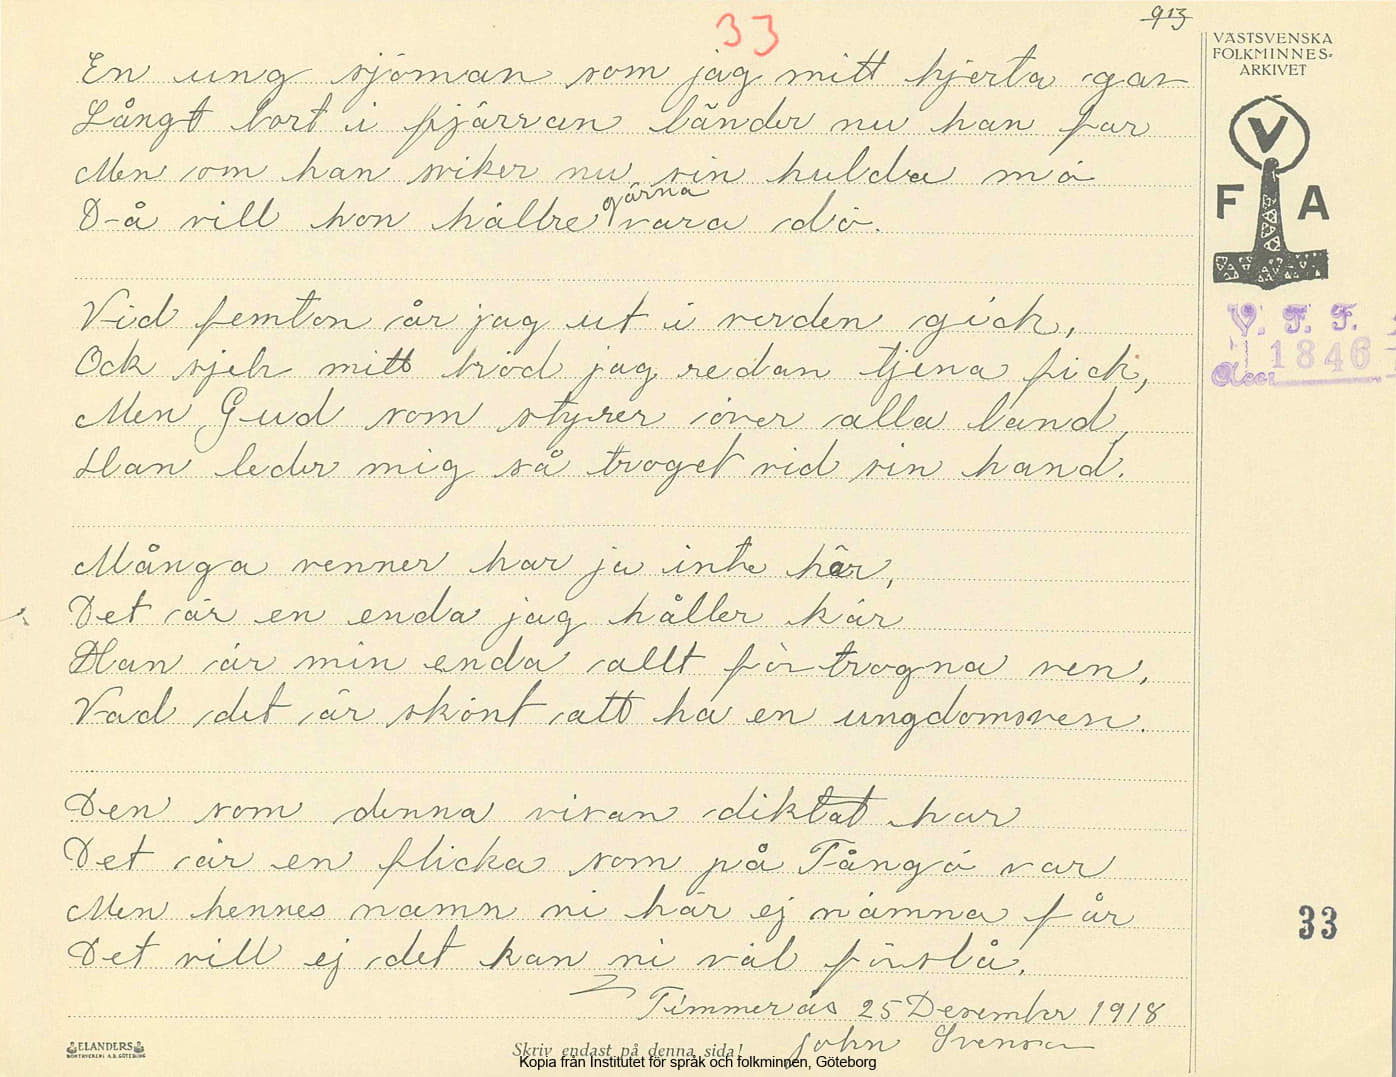 33
913
VÄSTSVENSKA
FOLKMINNES-
ARKIVET
V
F A
V. F. F.
1846
En ung sjöman som jag mitt hjerta gav
Långt bort i fjärran länder nu han far
Men om han sviker nu sin hulda mö
Då vill hon hällre gärna vara dö.
Vid femton år jag ut i verden gick,
Ock sjelv mitt bröd jag redan tjena fick,
Men Gud som styrer över alla land,
Han leder mig så troget vid sin hand.
Många venner har ja inte här,
Det är en enda jag håller kär
Han är min enda allt för trogna ven,
Vad det är skönt att ha en ungdomsven.
Den som denna visan diktat har
Det är en flicka som på Tångö var
Men hennes namn ni här ej nämna får
Det vill ej det kan ni väl förstå.
Timmerås 25 Desember 1918
John Svenson
33
ELANDERS
BOKTRYCKERI A.B. GÖTEBORG
Skriv endast på denna sida!
Kopia från Institutet för språk och folkminnen, Göteborg